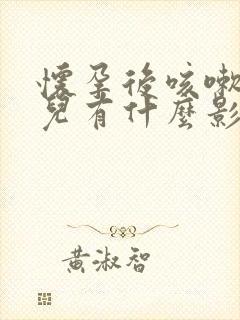 懷孕後咳嗽
兒有什麼影
黃淑智